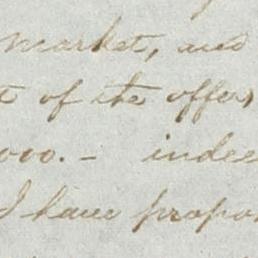 market, and
t of the offers
000. – indee
I have propos